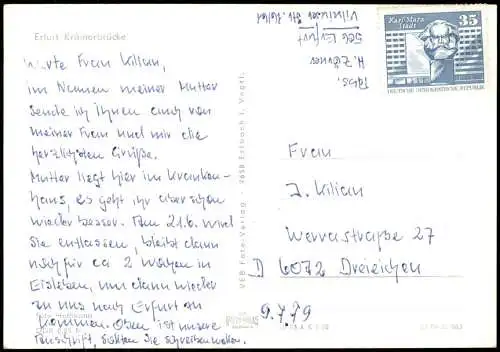 Erfurt Krämerbrücke
Werte Frau Kilian,
im Namen meiner Mutter
sende ich Ihnen auch von
meiner Frau und mir die
herzlichsten Grüße.
Mutter liegt hier im Kranken-
haus, es geht ihr aber schon
wieder besser. Am 21.6. wird
Sie entlassen, bleibt dann
noch für ca 2 Wochen in
Eisleben, um dann wieder
zu uns nach Erfurt zu
kommen. Oben ist unsere
Anschrift, sollten Sie schreiben wollen.
Foto: Hoffmann
VEB Foto-Verlag · 9658 Erlbach i. Vogtl.
Abs.
H. Zörner
506 Erfurt
Vilniuser Str.
Karl-Marx-
Stadt
35
DEUTSCHE DEMOKRATISCHE REPUBLIK
Frau
J. Kilian
Werrastraße 27
D 6072 Dreieichen
9.7.79